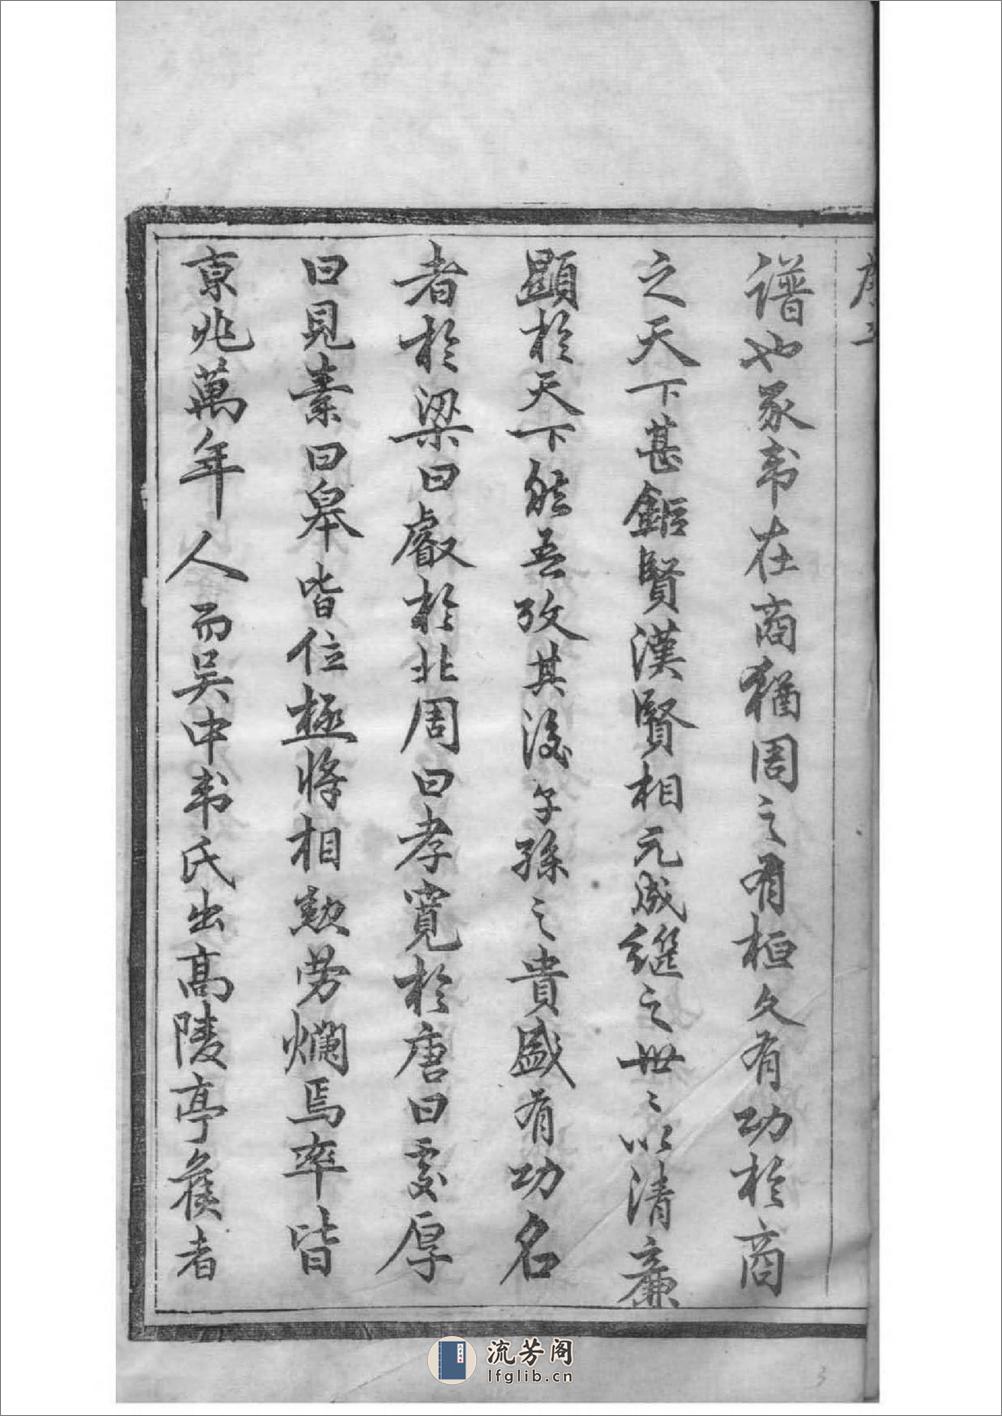 譜也豕韋在商猶周之有桓文有功於商
之天下甚鉅賢漢賢相元成繼之世〻以清廉
顯於天下然吾攷其後子孫之貴盛有功名
者於梁曰叡於北周曰孝寬於唐曰處厚
曰見素曰皋皆位極將相勲勞爛焉率皆
京兆萬年人而吳中韋氏出高陵亭侯者
流芳阁
lfglib.cn
3